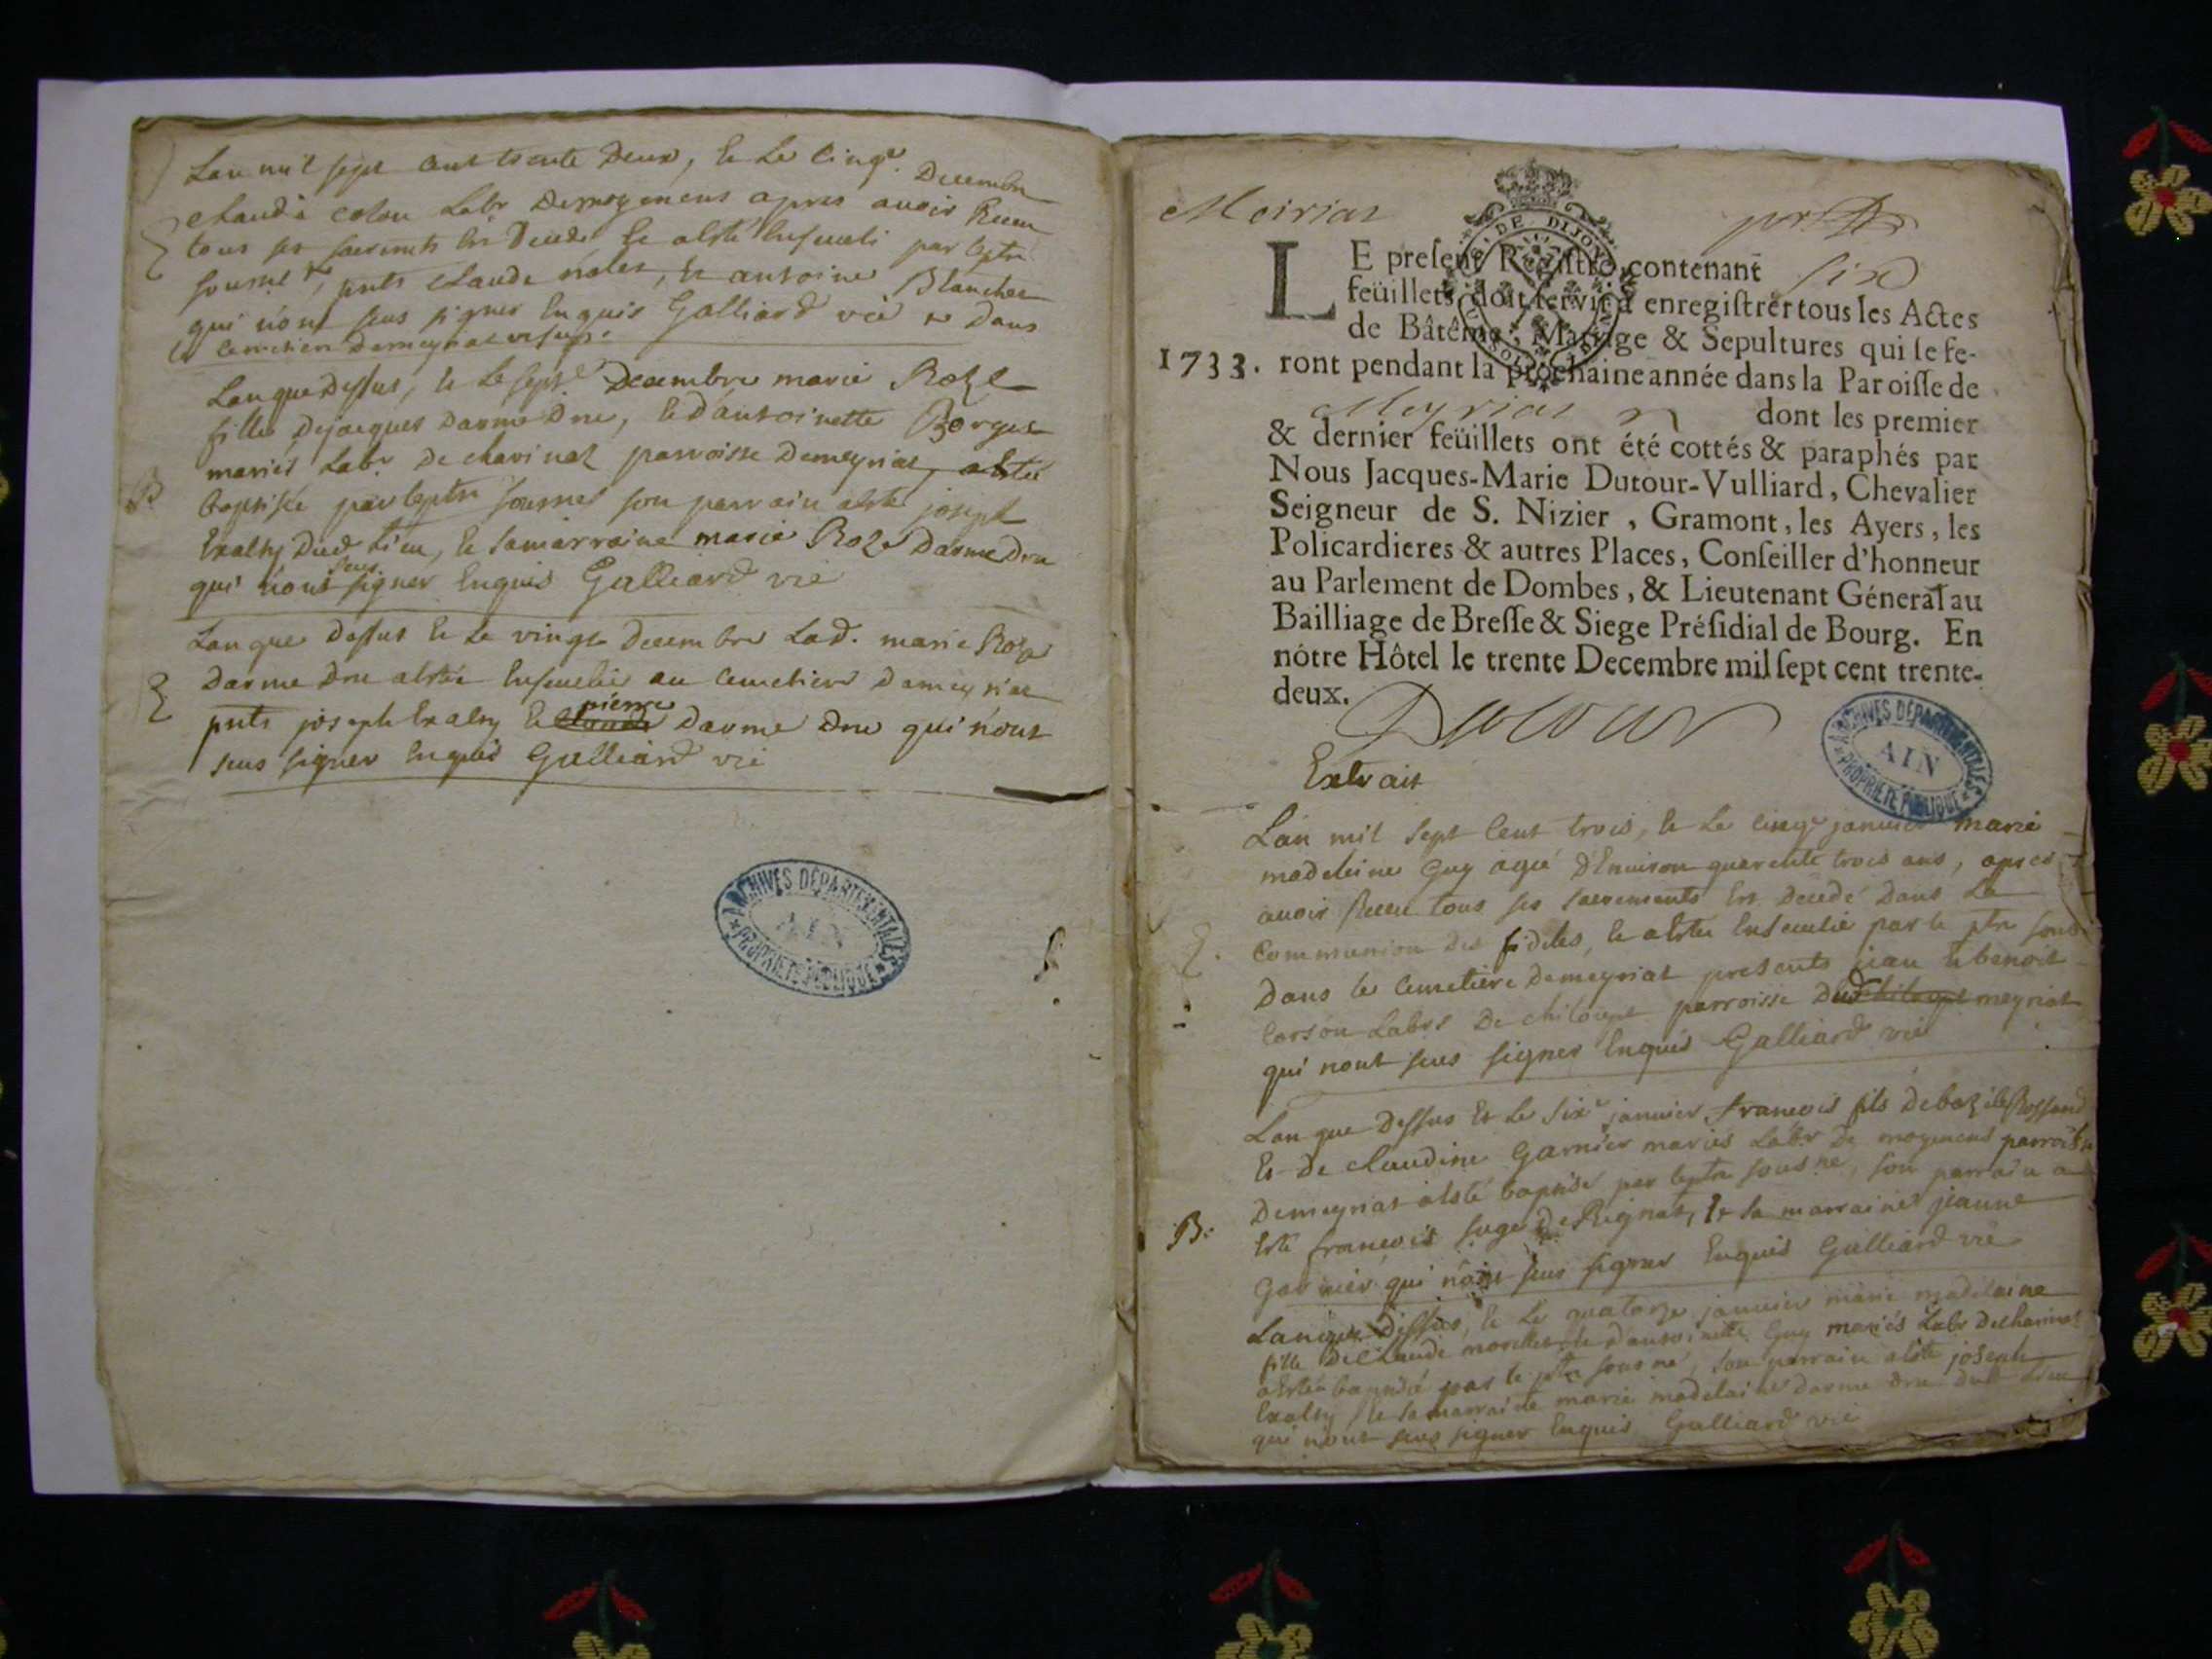 Lan mil sept cent trente Deux, & Le cinqe. Decembre
Claudà colon Labr Demoyenens apres avoir Receu
tous ses sacremts Est Decede & aEsté Enseveli par leptre
sousné, pnts Claude , Et antoine Blanchet
qui n'ont seus signer Enquis Galliard vic & Dans
Le cemetiere Demeyriat
Lan que Dessus, & Le sept.e Decembre marie Roze
fille Dejacques Darme Dru, & d'antoinette Borget
mariés Labr De chavinat parroisse Demeyriat, aEstée
baptisée par leptre sousné son parrain aEsté joseph
Evalsy Dud Lieu, & samarraine marie Roze Darme Dru
qui n'ont seus signer Enquis Galliard vic
B
Lan que Dessus & Le vingt Decembre Lad. marie Roze
Darme Dru aEstée Ensevelie au cemetiere Demeyriat
pnts joseph Evalsy & claude pierre Darme Dru qui n'ont
seus signer Enquis Galliard vic
ARCHIVES DÉPARTEMENTALES
AIN
PROPRIÉTÉ PUBLIQUE
Meirias
DE DIJON
LE present Registre contenant six
feüillets, doit servir à enregistrer tous les Actes
de Bâtême, Mariage & Sepultures qui se fe-
1733. ront pendant la prochaine année dans la Paroisse de
Meyrias dont les premier
& dernier feüillets ont été cottés & paraphés par
Nous Jacques-Marie Dutour-Vulliard, Chevalier
Seigneur de S. Nizier, Gramont, les Ayers, les
Policardieres & autres Places, Conseiller d'honneur
au Parlement de Dombes, & Lieutenant Géneral au
Bailliage de Bresse & Siege Présidial de Bourg. En
nôtre Hôtel le trente Decembre mil sept cent trente-
deux.
Dutour
ARCHIVES DÉPARTEMENTALES
AIN
PROPRIÉTÉ PUBLIQUE
Extrait
Lan mil sept Cent trois, & Le cinqe janvier marie
madeleine Guy agée D'Environ quarente trois ans, apres
avoir Receu tous ses sacrements Est Decedé Dans La
Communion Des fideles, & aEstée Ensevelie par le ptre sous
Dans le Cemetiere Demeyriat presents jean & benoit
Corson Labrs De chiloupt parroisse Dud chiloupt meyriat
qui nont seus signer Enquis Galliard vic
Lan que Dessus Et Le sixe janvier francois fils De bazile Rossand
Et De Claudine Garnier mariés Labr De moyenens parroisse
Demeyriat aEsté baptisé par leptre sousné, son parrain a
B. Esté francois De Rignat, Et sa marraine jeanne
Garnier qui n'ont seus signer Enquis Galliard vic
Lan que Dessus, & Le quatorze janvier marie madelaine
fille De Claude & D'antoinette Guy mariés Labr Dechavinat
aEstée baptisé par le ptre sousné, son parrain aEsté joseph
Evalsy & sa marraine marie madelaine Darme Dru Dud Lieu
qui n'ont seus signer Enquis Galliard vic